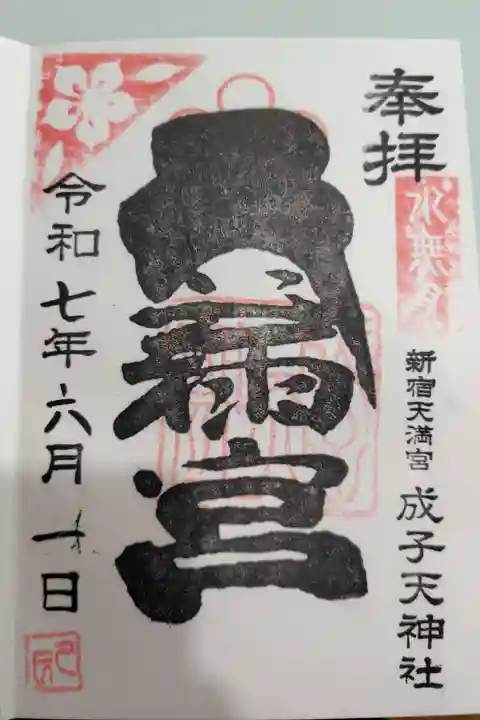 奉拝
水無月
新宿天満宮 成子天神社
天満宮
令和七年六月十日